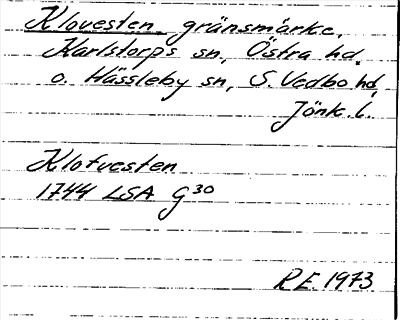 Klovesten gränsmärke.
Karlstorps sn, Östra hd.
o. Hässleby sn, S. Vedbo hd,
Jönk. l.
Klofvesten
1744 LSA G30
R.E. 1973